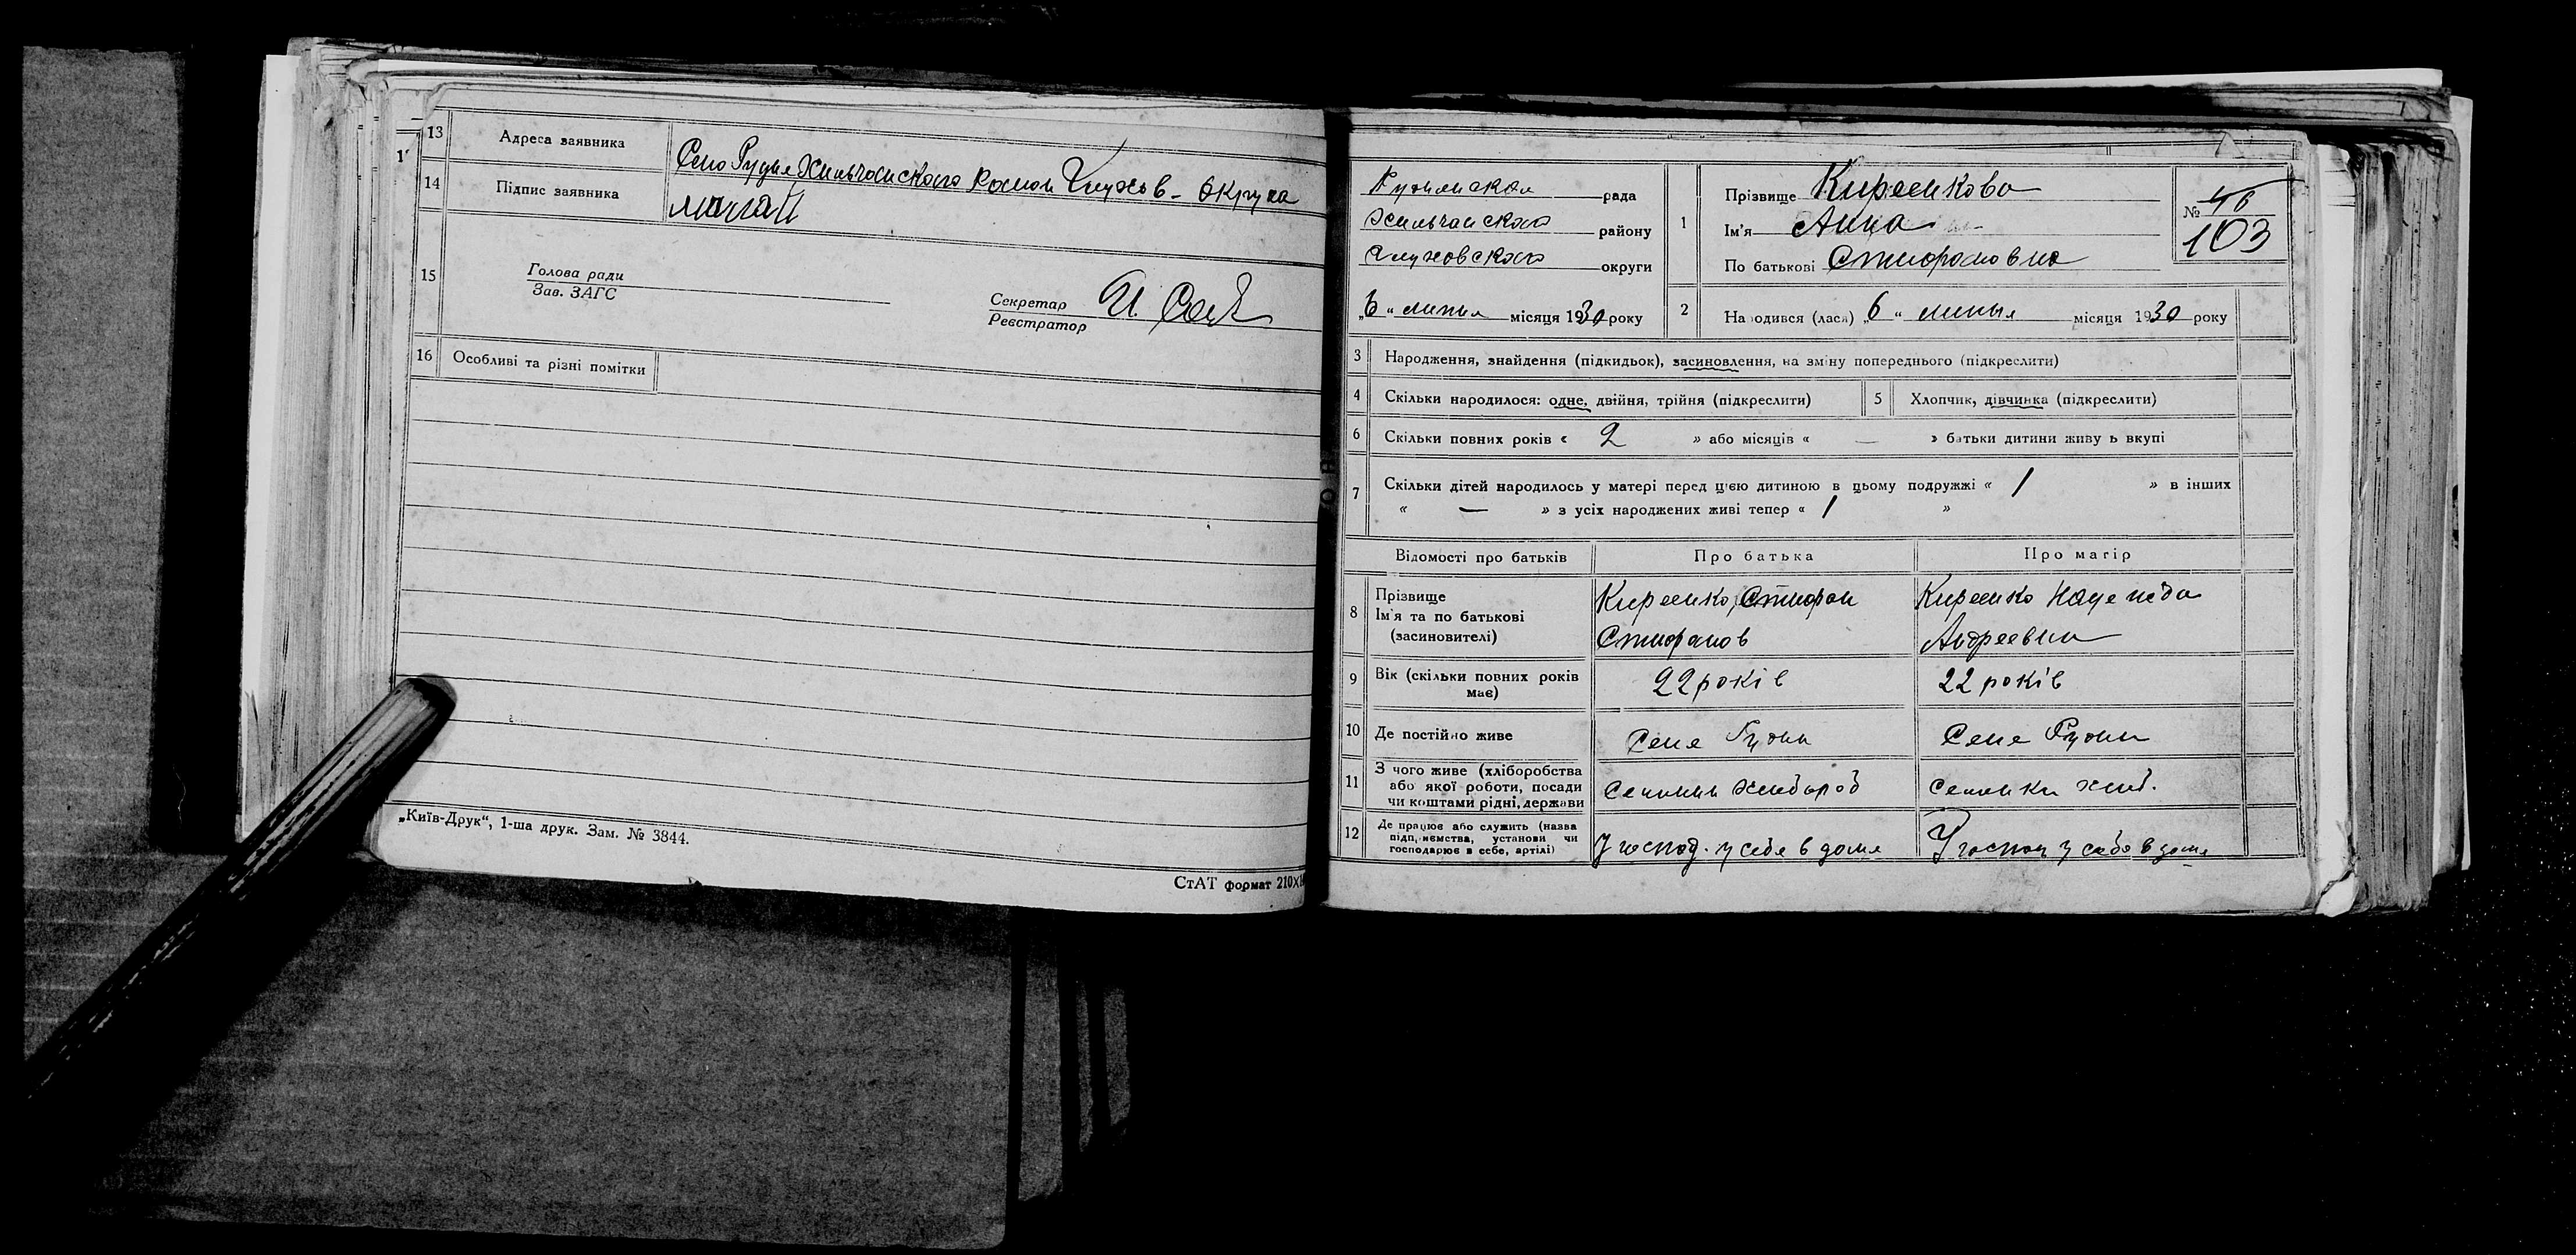 13 Адреса заявника Село Рудня Хильчанского Район Глухов- Округа
14 Підпис заявника
15 Голова ради
Зав. ЗАГС
Секретар
Реєстратор
16 Особливі та різні помітки
„Київ-Друк“, 1-ша друк. Зам. № 3844.
СтАТ формат 210×
Руднянская рада
Хильчанского району
Глуховского округи
„6“ липня місяця 1930 року
1 Прізвище Киреенкова
Ім'я Анна
По батькові Стифановна
№ 46
103
2 Народився (лася) „6“ липня місяця 1930 року
3 Народження, знайдення (підкидьок), засиновлення, на зміну попереднього (підкреслити)
4 Скільки народилося: одне, двійня, трійня (підкреслити)
5 Хлопчик, дівчинка (підкреслити)
6 Скільки повних років « 2 » або місяців « — » батьки дитини живу ь вкупі
7 Скільки дітей народилось у матері перед цією дитиною в цьому подружжі « 1 » в інших
« — » з усіх народжених живі тепер « 1 »
Відомості про батьків Про батька Про матір
8 Прізвище Киреенко, Стифан Киреенко Надежда
Ім'я та по батькові Стифанов Андреевна
(засиновителі)
9 Вік (скільки повних років має) 22 років 22 років
10 Де постійно живе Селе Рудни Селе Рудни
11 З чого живе (хліборобства
або якої роботи, посади
чи коштами рідні, держави Селянин хлибороб Селянка хлиб.
12 Де працює або служить (назва
підприємства, установи чи
господарює в себе, артілі) У господ. у себе в доме У господ у себе в доме